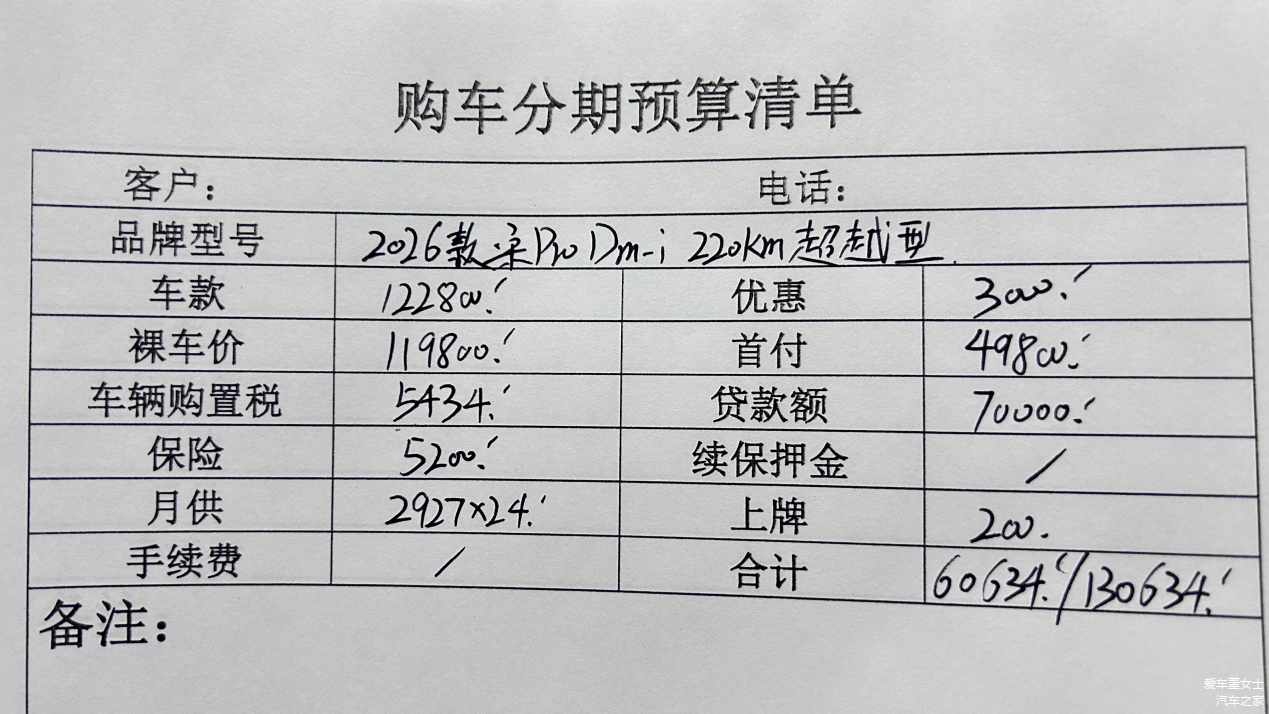 购车分期预算清单
客户： 电话：
品牌型号 2026款宋Pro Dm-i 220km超越型.
车款 122800. 优惠 3000.
裸车价 119800. 首付 49800.
车辆购置税 5434. 贷款额 70000.
保险 5200. 续保押金 /
月供 2927×24. 上牌 200.
手续费 / 合计 60634./130634.
备注：
爱车董女士
汽车之家